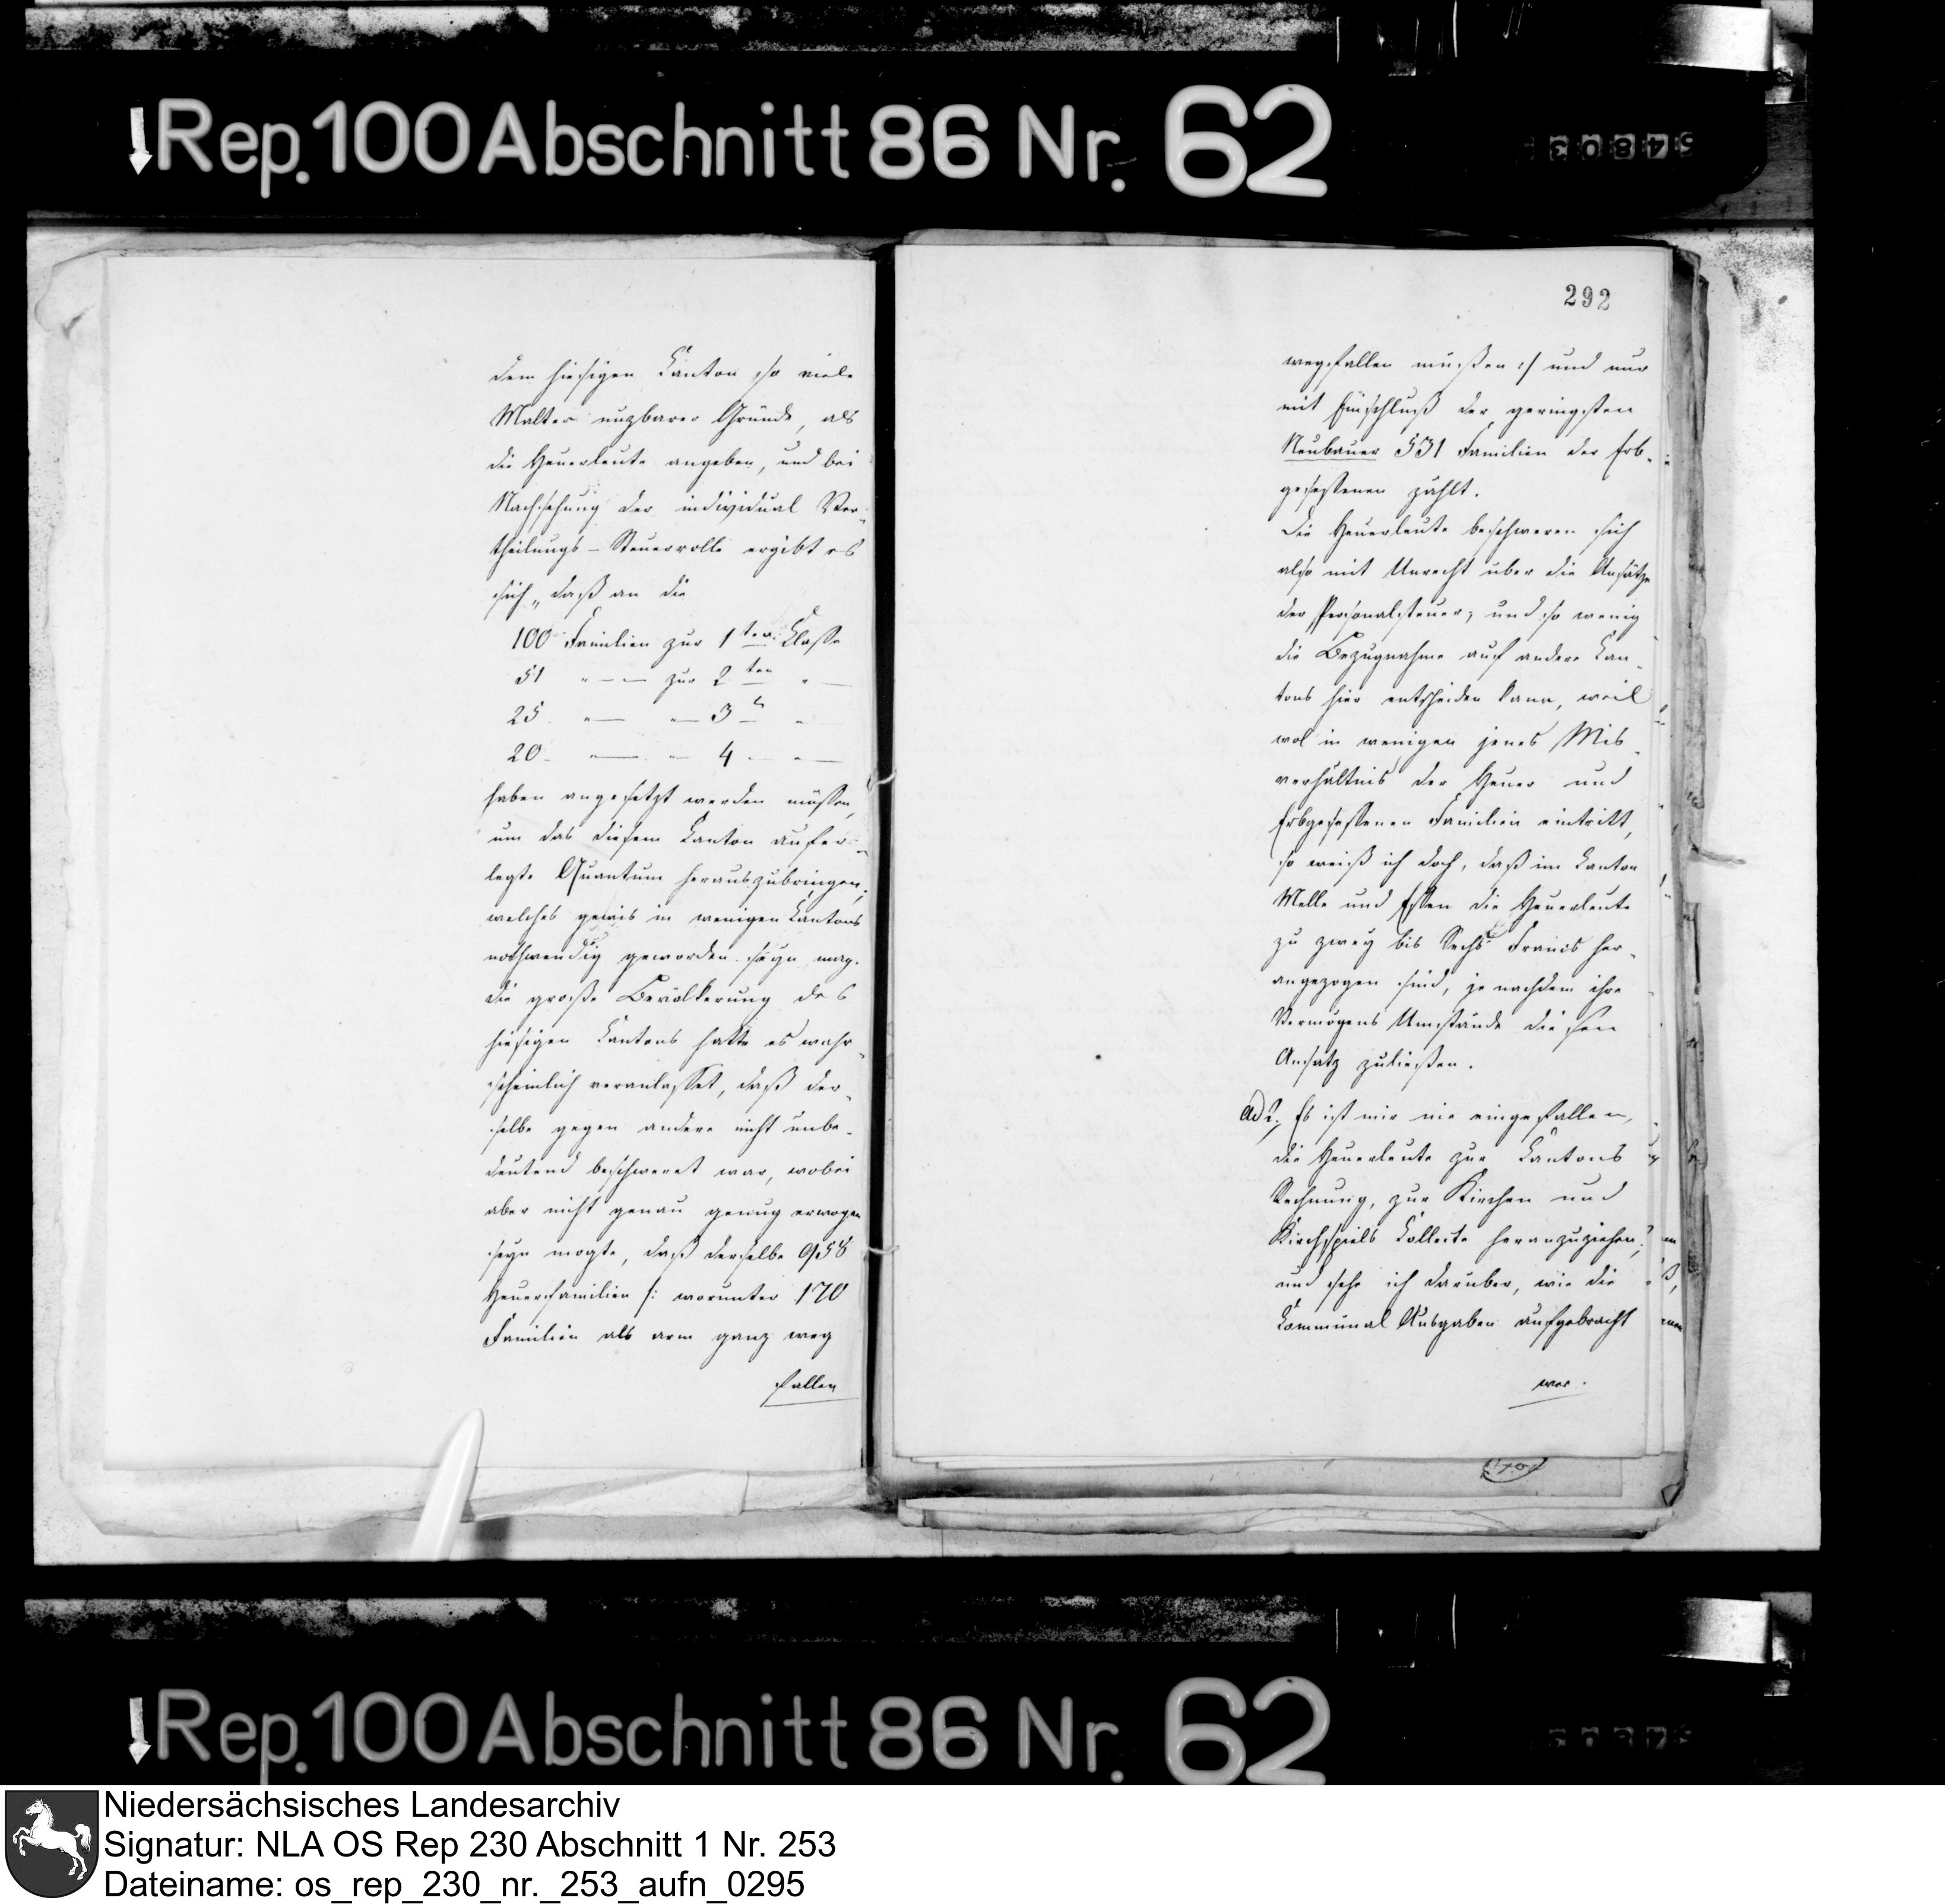 Rep. 100 Abschnitt 86 Nr. 62
dem hiesigen Canton so viele
Malter nuzbarer Gründe, als
die Heuerleute angeben, und bei
Nachsehung der individual Ver-
theilungs-Steuerrolle ergibt es
sich, daß an die
100 Familien zur 1ten Classe
51 " — zur 2ten " —
25 " — " — 3 "
20 " — " 4 — " —
haben angesetzt werden müssen,
um das diesem Canton aufer-
legte Quantum herauszubringen,
welches gewis in wenigen Cantons
nothwendig geworden seyn mag.
die große Bevölkerung des
hiesigen Cantons hatte es wahr-
scheinlich veranlasset, daß der-
selbe gegen andere nicht unbe-
deutend beschweret war, wobei
aber nicht genau genug erwogen
seyn mogte, daß derselbe 958
Heuerfamilien /: worunter 170
Familien als arm ganz weg
fallen
292
wegfallen mußen :/ und nur
mit Einschluß der geringsten
Neubauer 531 Familien der Erb-
gesessenen zählt.
Die Heuerleute beschweren sich
also mit Unrecht über die Ansätze
der Personalsteuer; und so wenig
die Bezugnahme auf andere Can-
tons hier entscheiden kann, weil
wol in wenigen jenes Mis-
verhältnis der Heuer und
Erbgesessenen Familien eintritt,
so weiß ich doch, daß im Canton
Melle und Essen die Heuerleute
zu zwey bis Sechs Francs her-
angezogen sind, je nachdem ihre
Vermögens Umstände diesen
Ansatz zuließen.
ad 2. Es ist mir nie eingefallen,
die Heuerleute zur Cantons
Rechnung, zur Kirchen und
Kirchspiels Collecte heranzuziehen;
und sehe ich darüber, wie die
Communal Ausgaben aufgebracht
wer.
Rep. 100 Abschnitt 86 Nr. 62
Niedersächsisches Landesarchiv
Signatur: NLA OS Rep 230 Abschnitt 1 Nr. 253
Dateiname: os_rep_230_nr._253_aufn_0295